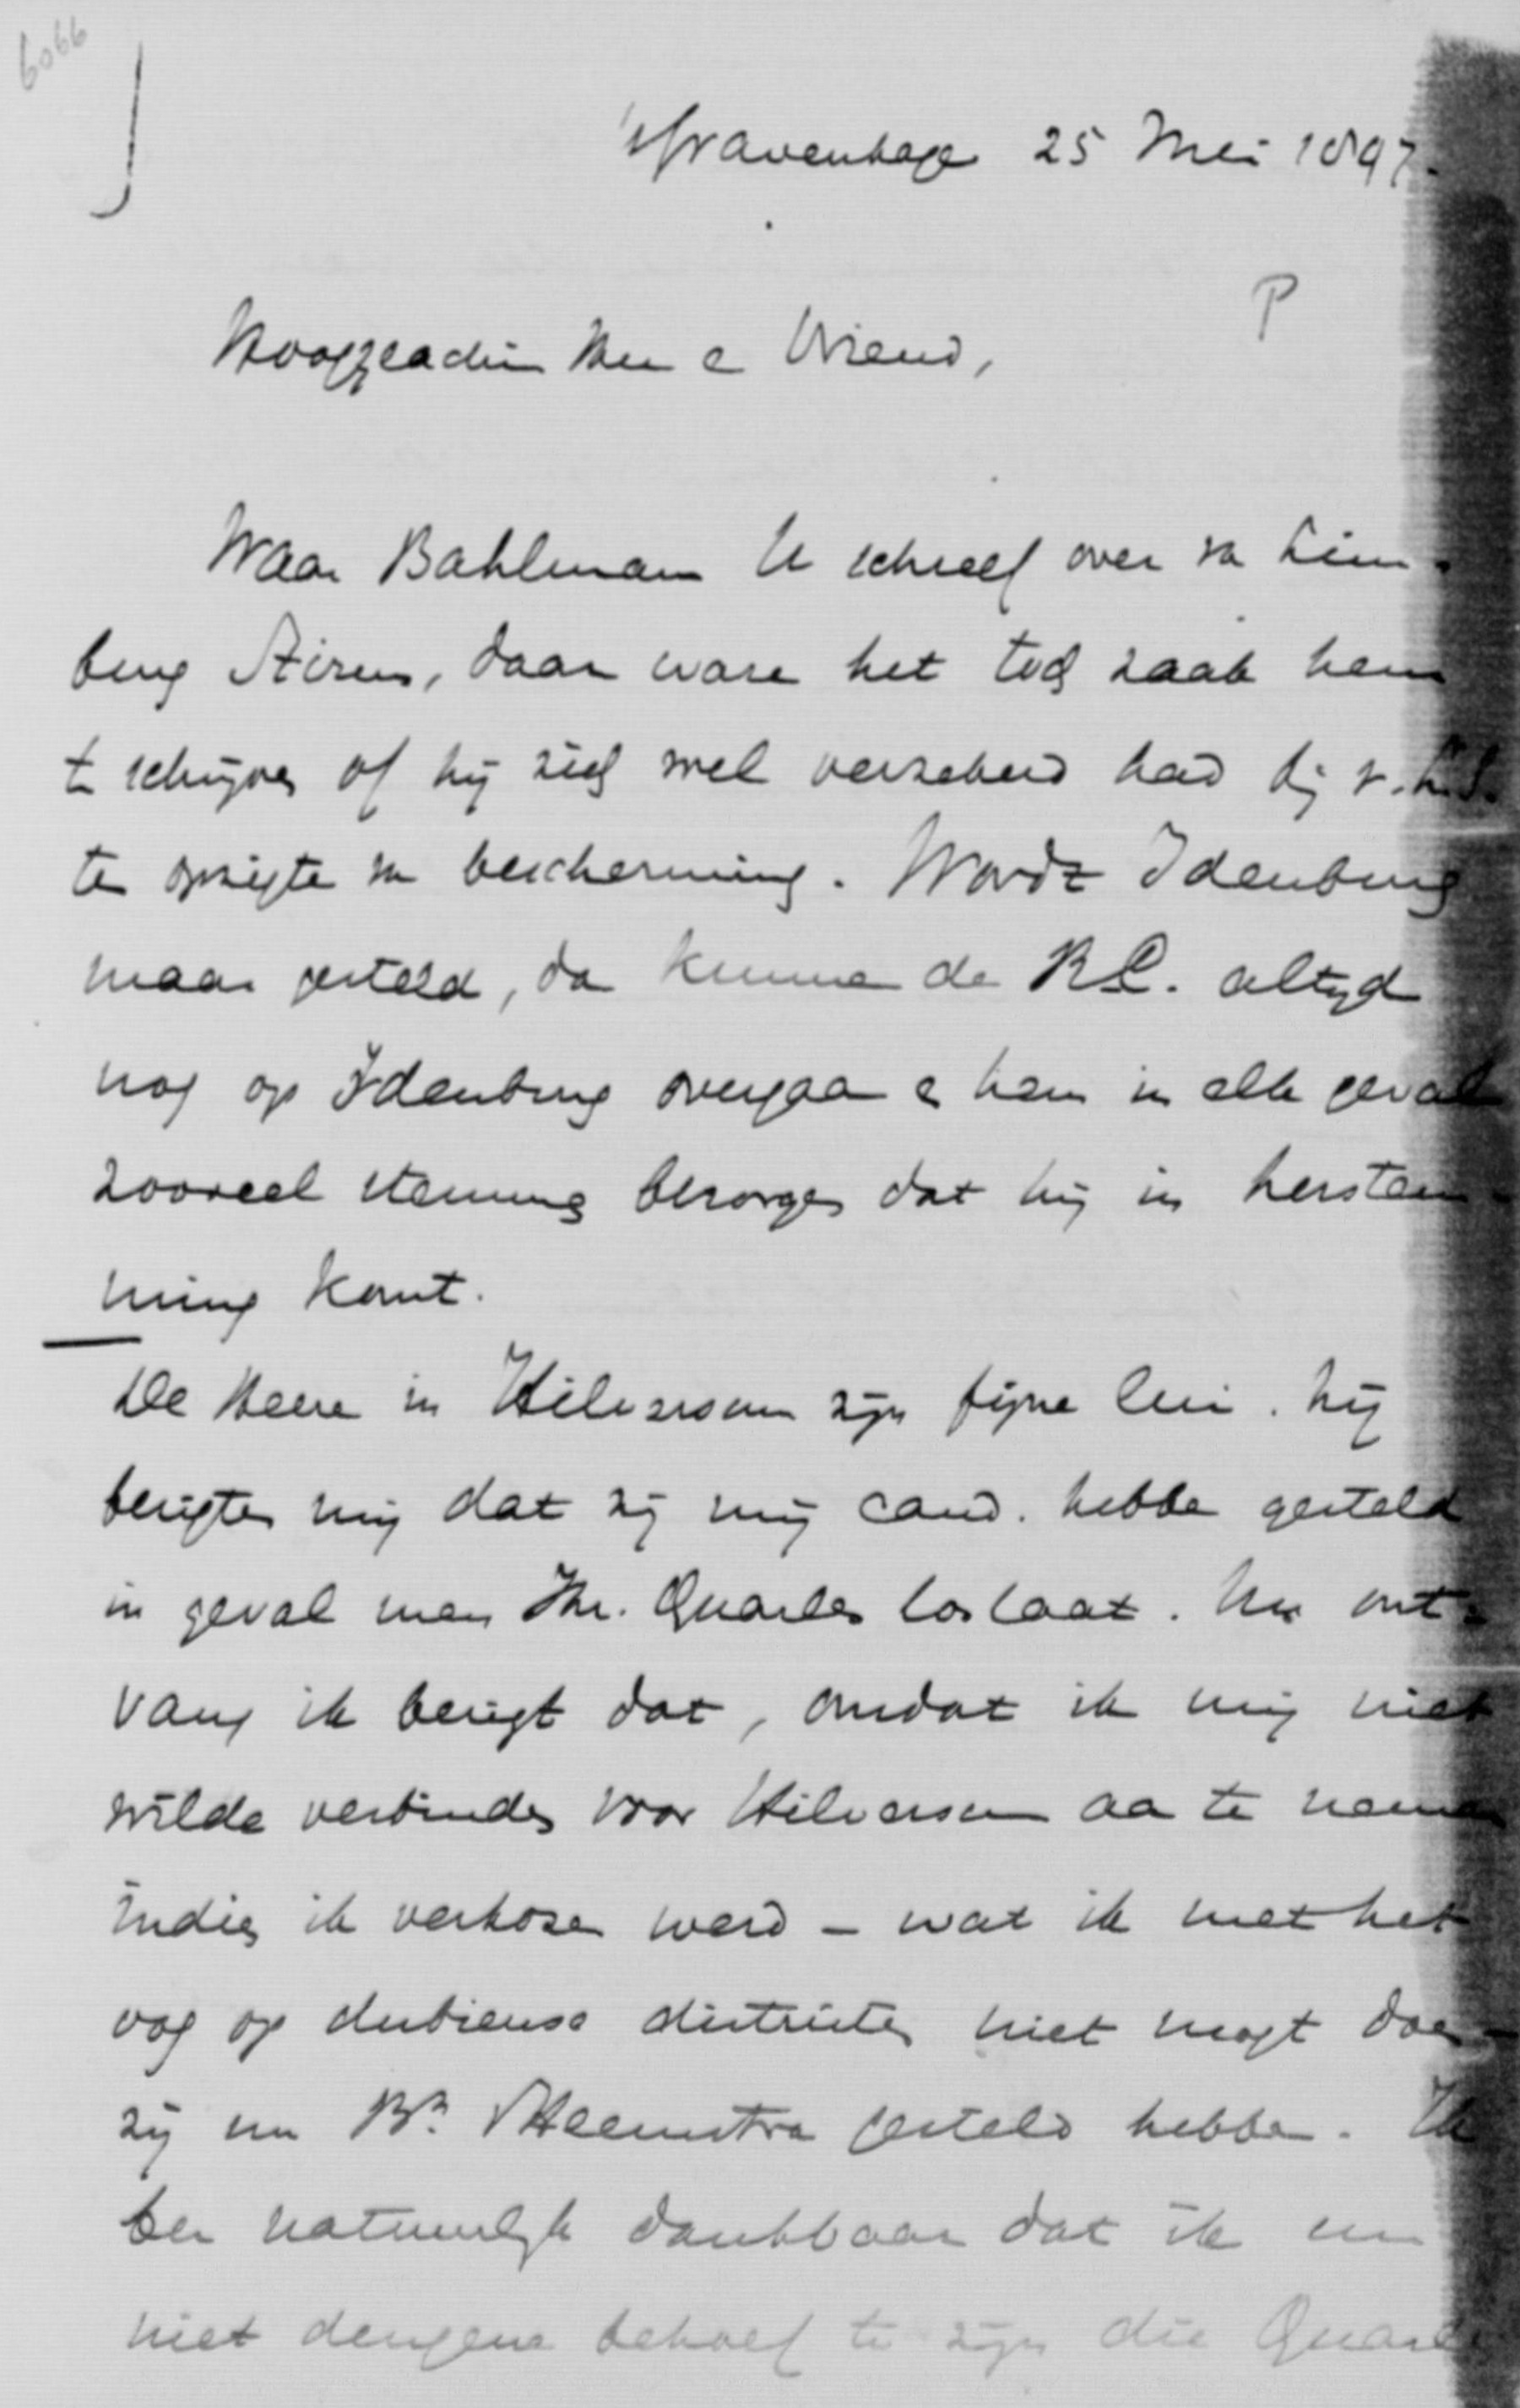 6066
'sGravenhage 25 Mei 1897.
P
Hooggeachte Heer en Vriend,
Waar Bahlman U schreef over van Lim-
burg Stirum, daar ware het toch zaak hem
te schrijven of hij zich wel verzekerd had bij v. L. S.
ten opzigte van bescherming. Wordt Idenburg
maar gesteld, dan kunnen de R.C. altijd
nog op Idenburg overgaan en hem in elk geval
zooveel stemmen bezorgen dat hij in herstem-
ming komt.
De Heeren in Hilversum zijn fijne lui. Zij
berigten mij dat zij mij cand. hebben gesteld
in geval men Jhr. Quarles loslaat. Nu ont-
vang ik berigt dat, omdat ik mij niet
wilde verbinden voor Hilversum aan te nemen
indien ik verkozen werd - wat ik met het
oog op dubieuse districten niet mogt doen -
zij nu Bn. v Heemstra gesteld hebben. Ik
ben natuurlijk dankbaar dat ik nu
niet dengene behoef te zijn die Quarles